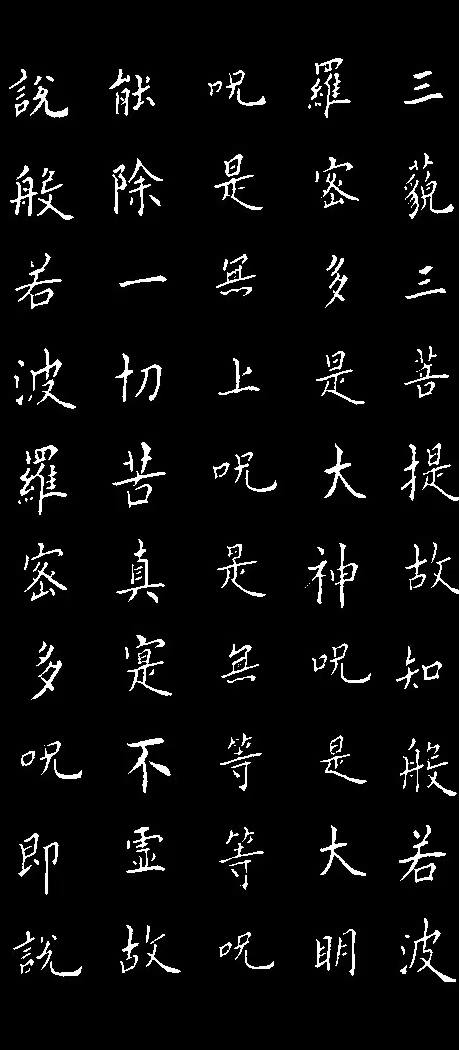 三藐三菩提故知般若波
羅密多是大神呪是大明
呪是無上呪是無等等呪
能除一切苦真寔不虛故
說般若波羅密多呪即說